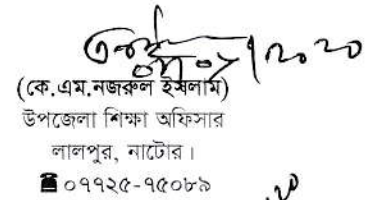 (কে.এম.নজরুল ইসলাম)
উপজেলা শিক্ষা অফিসার
লালপুর, নাটোর।
☎০৭৭২৫-৭৫০৮৯